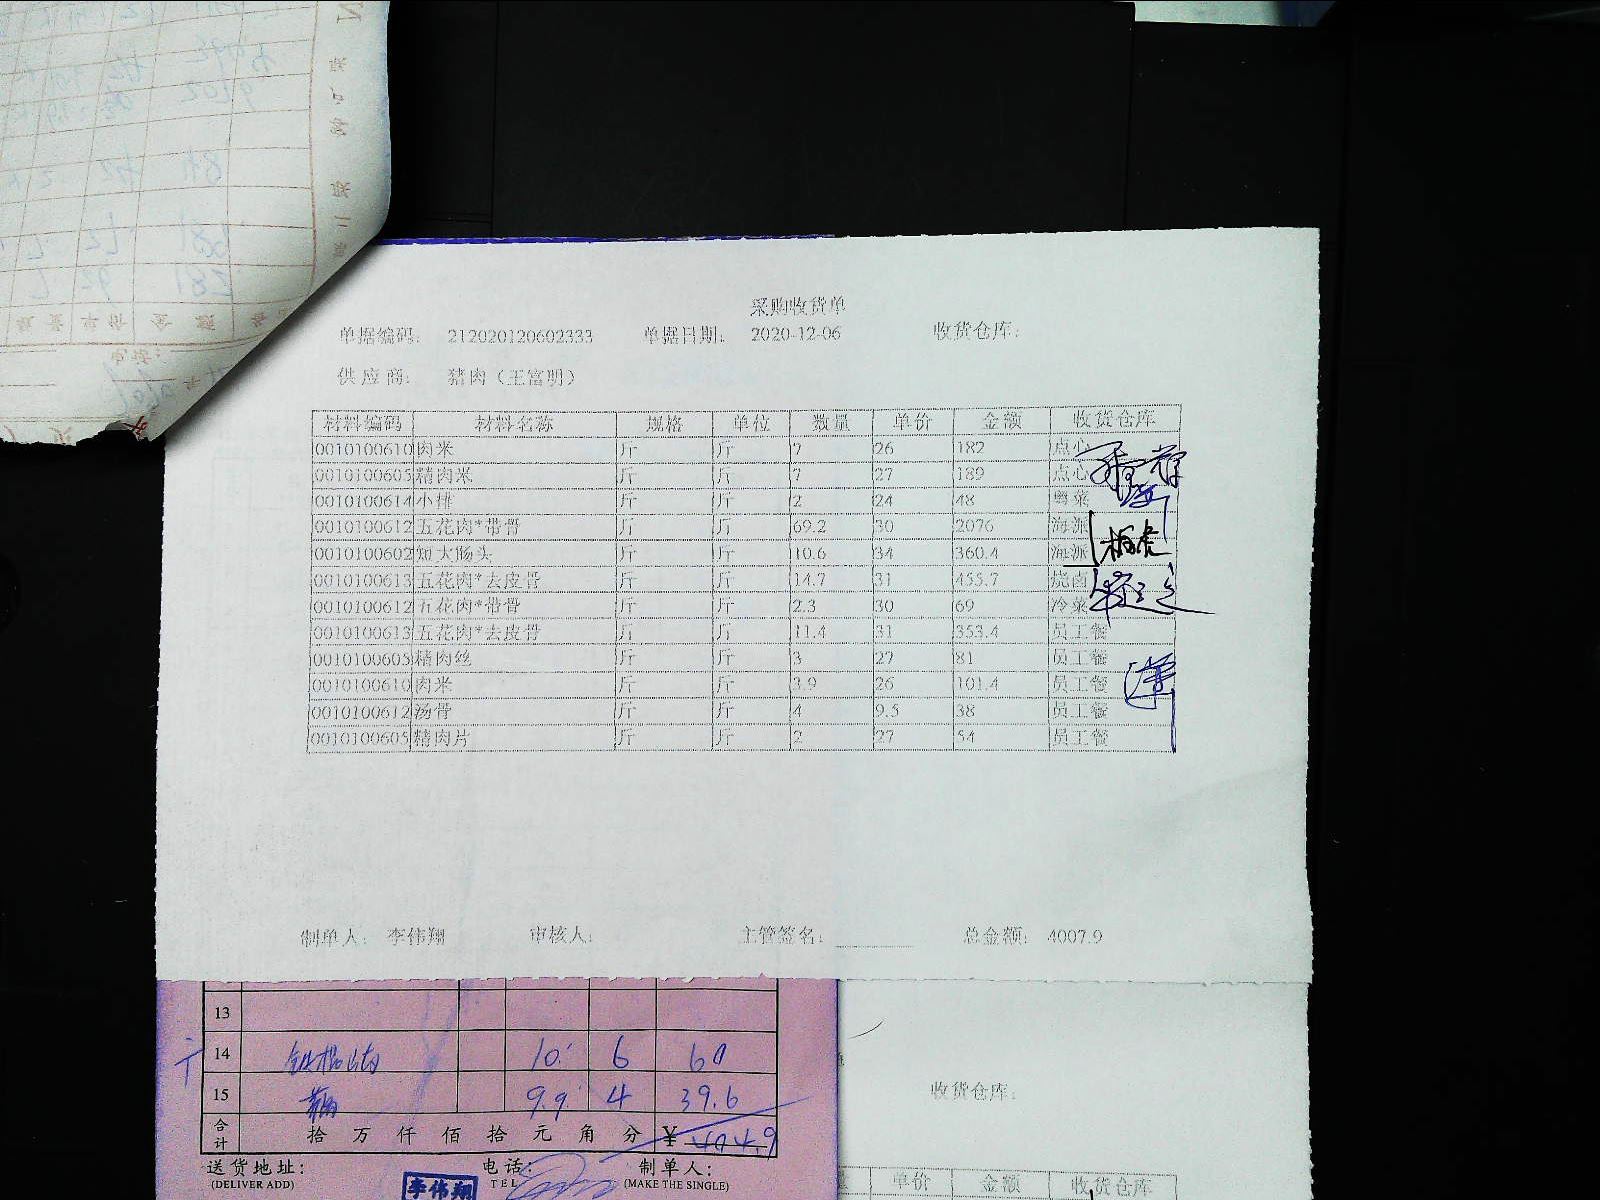 采购收货单
单据编码: 212020120602333 单据日期: 2020-12-06 收货仓库:
供应商: 猪肉（王富明）
材料编码 材料名称 规格 单位 数量 单价 金额 收货仓库
0010100610 肉米 斤 斤 7 26 182 点心
0010100605 精肉米 斤 斤 7 27 189 点心
0010100614 小排 斤 斤 2 24 48 粤菜
0010100612 五花肉*带骨 斤 斤 69.2 30 2076 海派
0010100602 短大肠头 斤 斤 10.6 34 360.4 海派
0010100613 五花肉*去皮骨 斤 斤 14.7 31 455.7 烧卤
0010100612 五花肉*带骨 斤 斤 2.3 30 69 冷菜
0010100613 五花肉*去皮骨 斤 斤 11.4 31 353.4 员工餐
0010100605 精肉丝 斤 斤 3 27 81 员工餐
0010100610 肉米 斤 斤 3.9 26 101.4 员工餐
0010100612 汤骨 斤 斤 4 9.5 38 员工餐
0010100605 精肉片 斤 斤 2 27 54 员工餐
制单人: 李伟翔 审核人: 主管签名: 总金额: 4007.9
13
14 10. 6 60
15 9.9 4 39.6
合计 拾 万 仟 佰 拾 元 角 分 ¥
送货地址: 电话: 制单人:
(DELIVER ADD) TEL (MAKE THE SINGLE)
李伟翔
收货仓库:
单价 金额 收货仓库